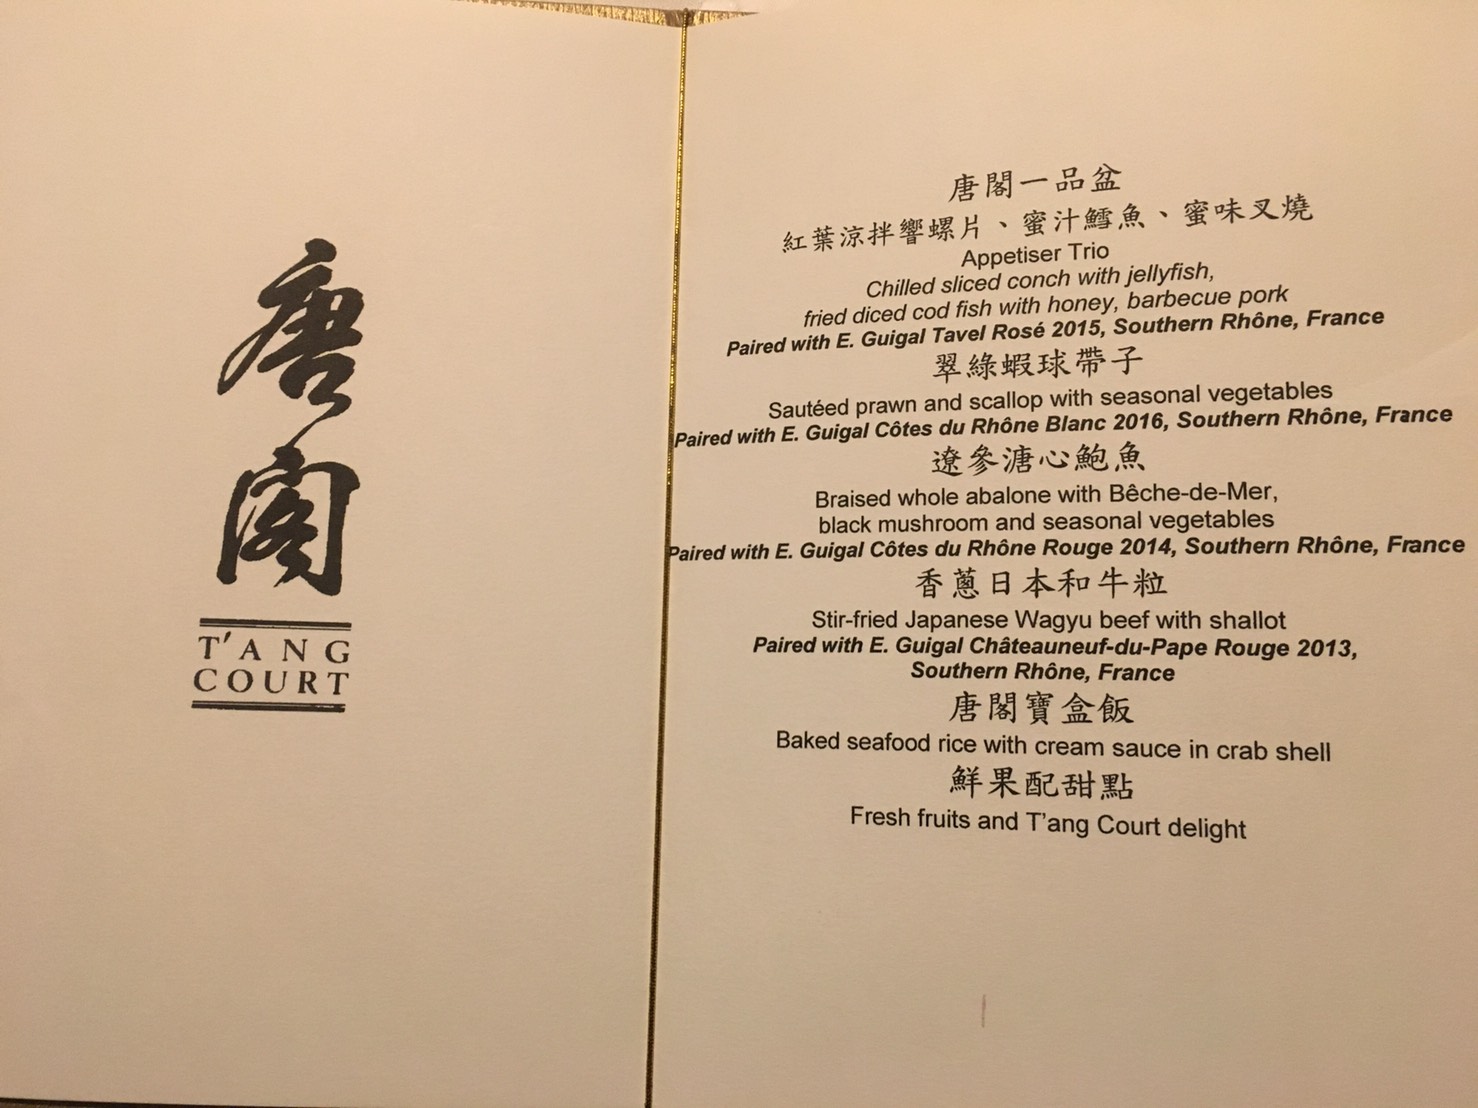 唐閣
T'ANG
COURT
唐閣一品盆
紅葉涼拌響螺片、蜜汁鱈魚、蜜味叉燒
Appetiser Trio
Chilled sliced conch with jellyfish,
fried diced cod fish with honey, barbecue pork
Paired with E. Guigal Tavel Rosé 2015, Southern Rhône, France
翠綠蝦球帶子
Sautéed prawn and scallop with seasonal vegetables
Paired with E. Guigal Côtes du Rhône Blanc 2016, Southern Rhône, France
遼參溏心鮑魚
Braised whole abalone with Bêche-de-Mer,
black mushroom and seasonal vegetables
Paired with E. Guigal Côtes du Rhône Rouge 2014, Southern Rhône, France
香蔥日本和牛粒
Stir-fried Japanese Wagyu beef with shallot
Paired with E. Guigal Châteauneuf-du-Pape Rouge 2013,
Southern Rhône, France
唐閣寶盒飯
Baked seafood rice with cream sauce in crab shell
鮮果配甜點
Fresh fruits and T'ang Court delight